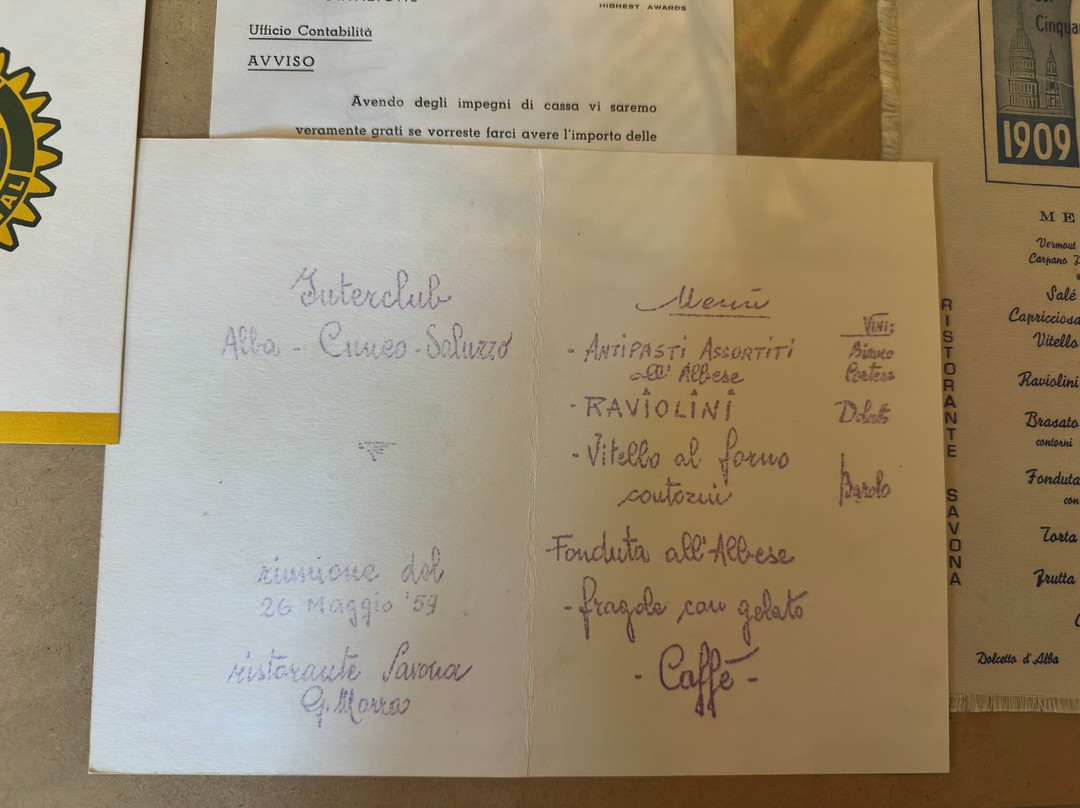 HIGHEST AWARDS
Ufficio Contabilità
AVVISO
Avendo degli impegni di cassa vi saremo
veramente grati se vorreste farci avere l'importo delle
Interclub
Alba - Cuneo - Saluzzo
riunione del
26 Maggio '59
ristorante Savona
G. Marra
Menù
- ANTIPASTI ASSORTITI
all'Albese
- RAVIOLINI
- Vitello al forno
contorni
- Fonduta all'Albese
- fragole con gelato
- Caffè -
VINI:
Bianco
Cortese
Barolo
RISTORANTE SAVONA
Cinqua
1909
ME
Vermout
Carpano
Salé
Capricciosa
Vitello
Raviolini
Brasato
contorni
Fonduta
con
Torta
Frutta
Dolcetto d'Alba